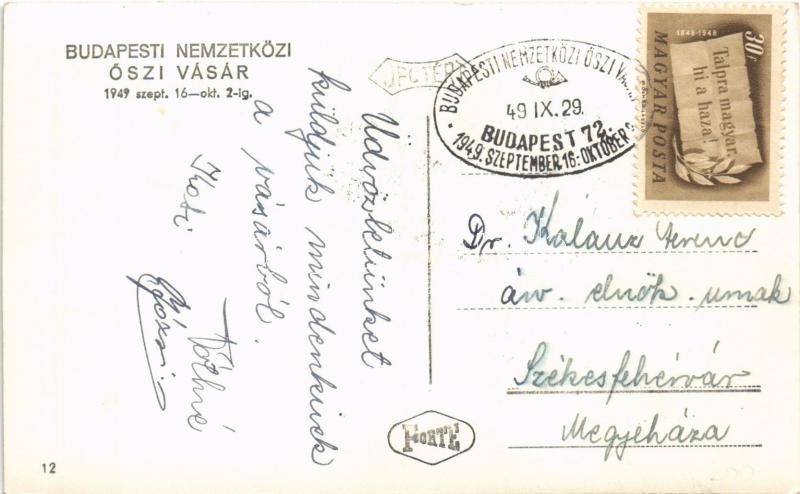 BUDAPESTI NEMZETKÖZI
ŐSZI VÁSÁR
1949 szept. 16—okt. 2-ig.
Üdvözletünket
küldjük mindenkinek
a vásárból.
Kati
Tóthné
BUDAPESTI NEMZETKÖZI ŐSZI
49 IX. 29.
BUDAPEST 72.
1949. SZEPTEMBER 16. OKTÓBER
1848-1948
30f
MAGYAR POSTA
Talpra magyar,
hi a haza!
Dr. Kalauz Ferenc
áw. elnök. urnak
Székesfehérvár
Megyeháza
FORTE
12